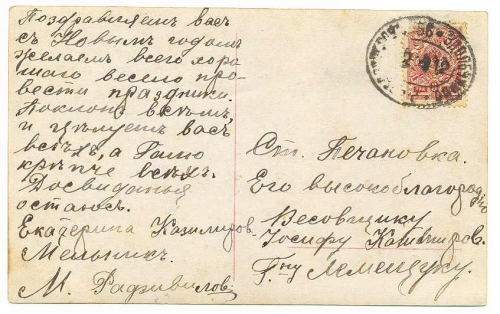 Поздравляем васъ
съ Новымъ годом
желаем всего хоро
шаго весело про-
вести праздники.
Поклонъ всѣмъ,
и цѣлуем васъ
всѣхъ, а Галю
крѣпче всѣхъ.
Досвиданья
остаюсь.
Екатерина Казимиров-
Мельникъ.
М. Радзивиловъ
Ст. Печановка.
Его высокоблагородію
Весовщику
Іосифу Казимиров.
Г-ну Лемещуку.